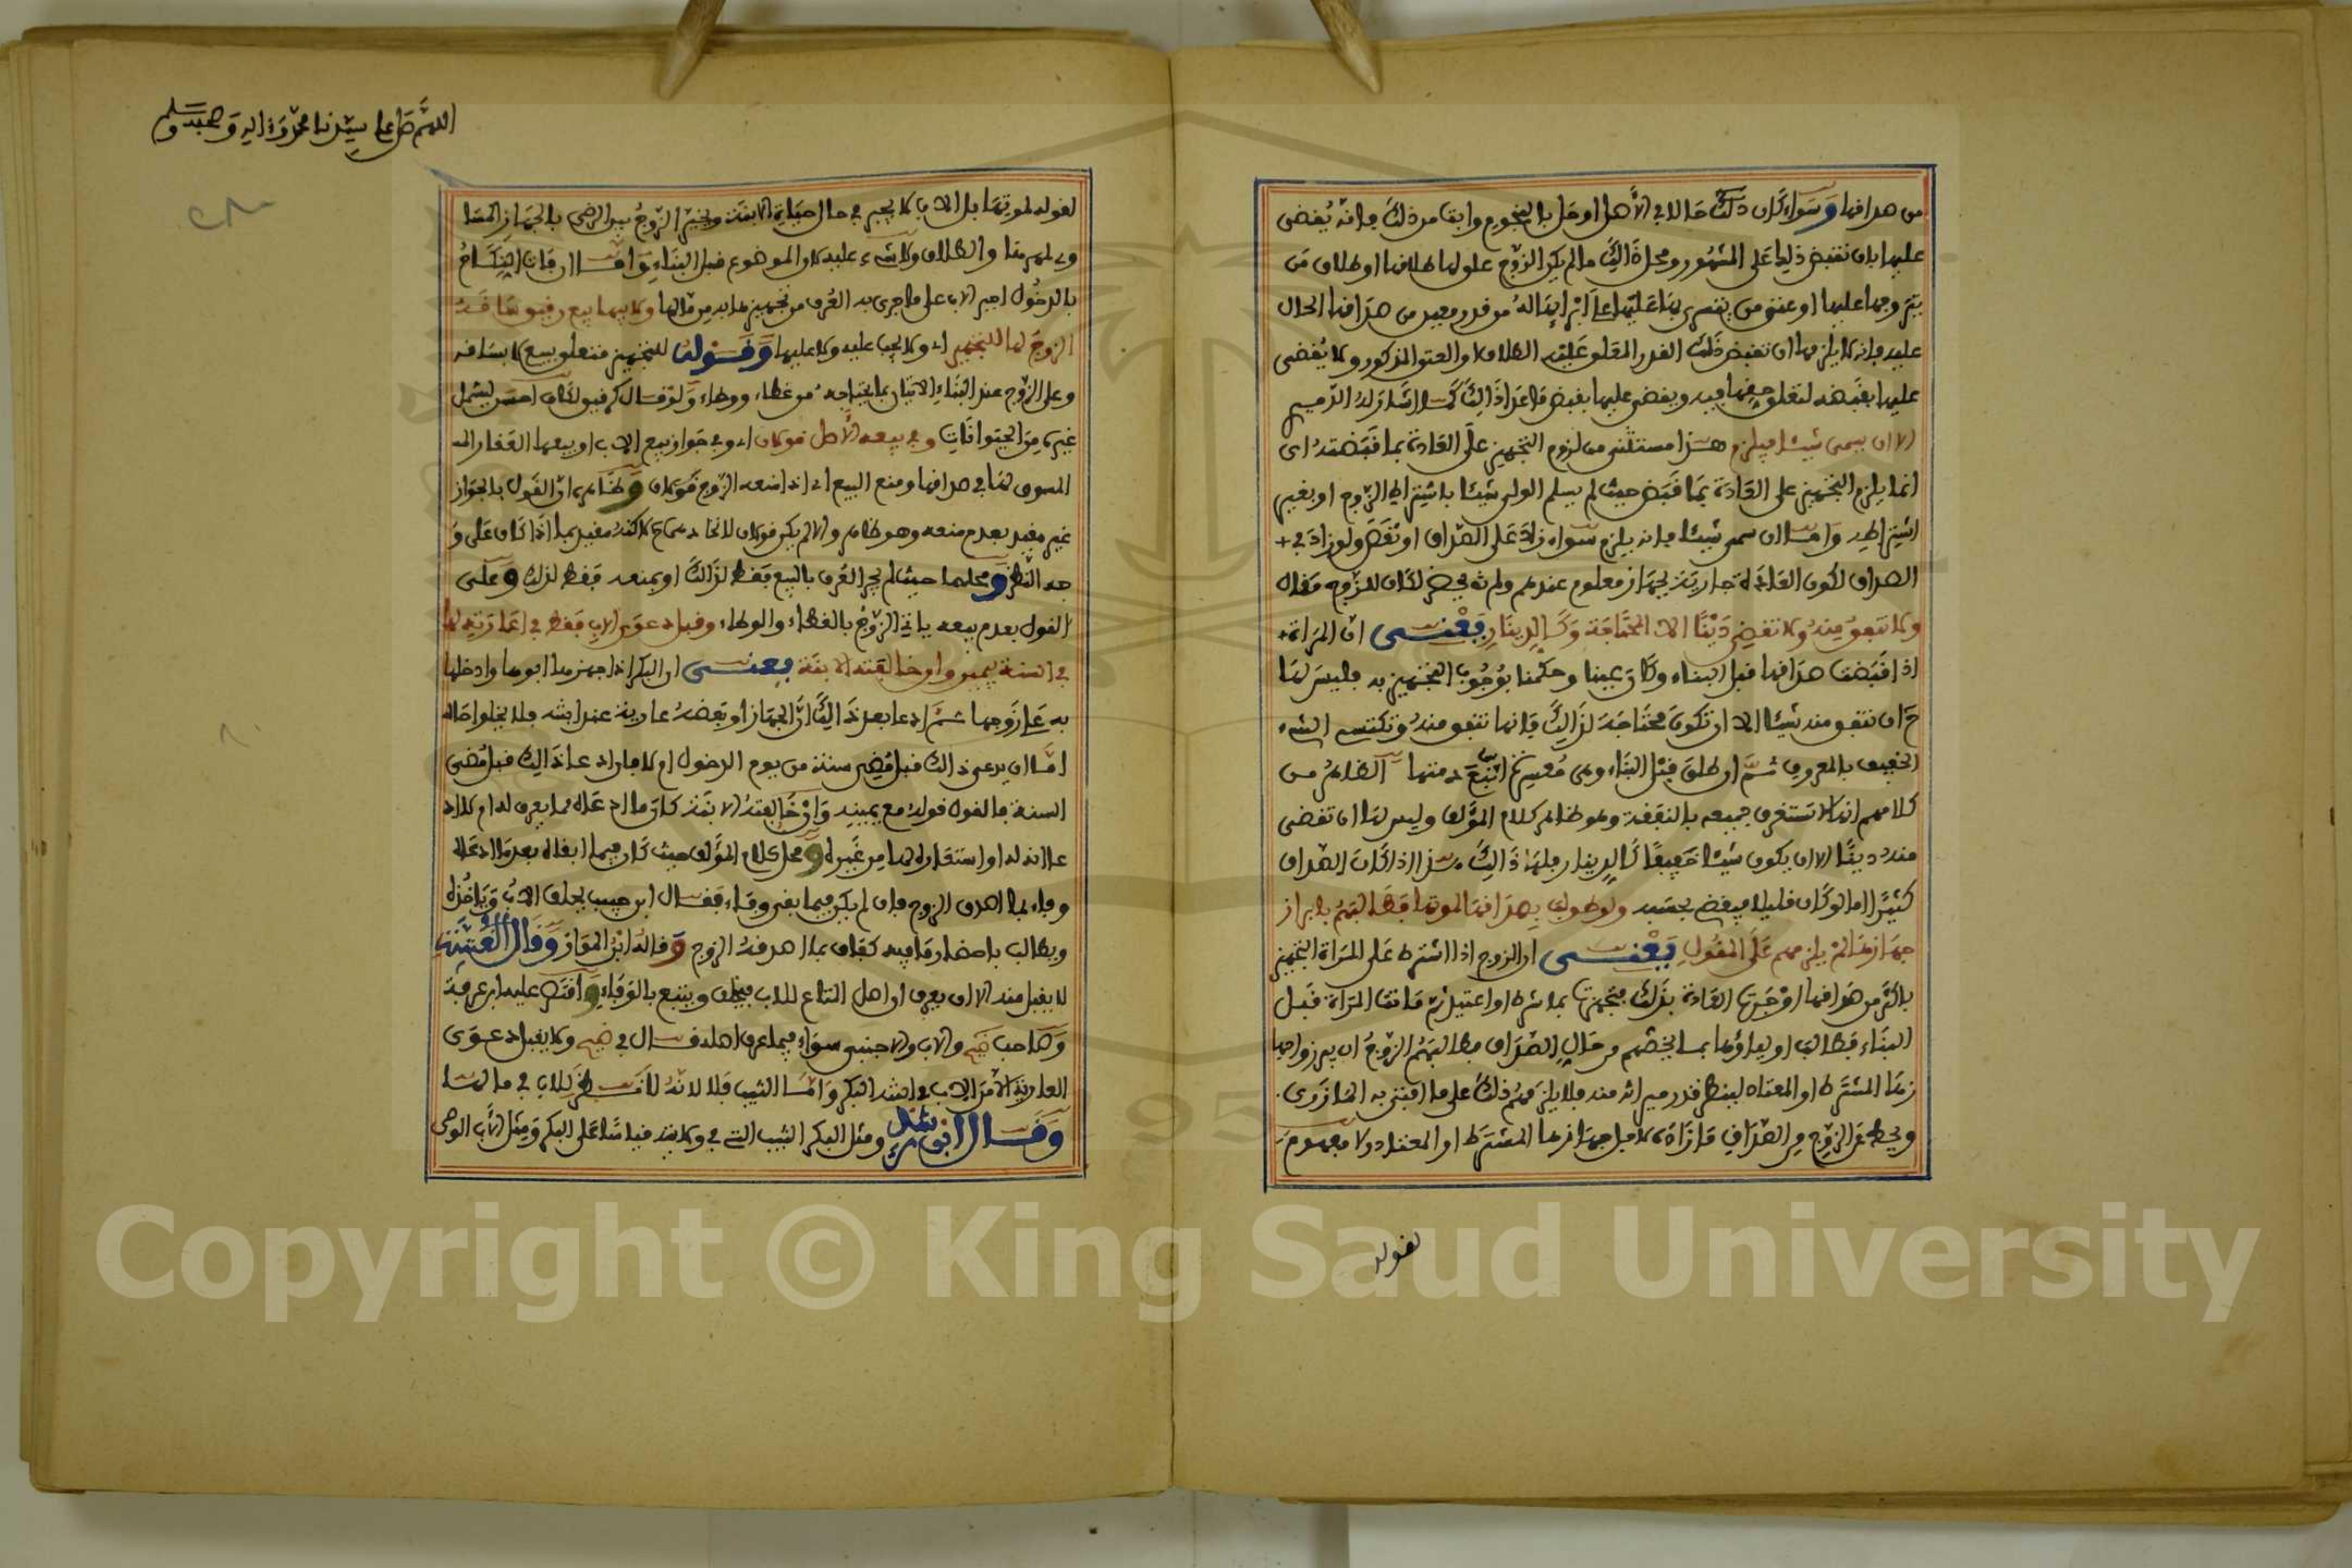 من صداقها وسواء كان ذلك حالا في الأصل او حل بالنجوم وابقا من ذلك فانه يقضى
عليها بان تقبض ذلك على المشهور ومحل ذلك ما لم يكن الزوج علو لها طلاقها او طلاق من
يتزوجها عليها او عتق من يتسرى بها عليها على ابرايها له من قدر معين من صداقها الحال
عليه فانه لا يلزمها ان تقبض ذلك القدر المعلو عليه الطلاق والعتق المذكور ولا يقضى
عليها بقبضه لتعلو حقها فيه ويقضى عليها بقبض ما عدا ذالك كما اشار له الدميم
الا ان يسمى شيئا فيلزم هذا مستثنى من لزوم التجهيز على العادة بما قبضته اى
انما يلزم التجهيز على العادة بما قبض حيث لم يسلم الولى شيئا باشتراط الزوج او بغير
اشتراطه واما ان سمى شيئا فانه يلزم سواء زاد على الصداق او نقص ولو زاد في
الصداق لكون العادة جارية بجهاز معلوم عندهم ولم يحضر لكان للزوج مقاله
ولا تنفق منه ولا تقضى دينا الا المحتاجة وكالدينار يعنى ان المراة
اذا قبضت صداقها قبل البناء وكان عينا وحكمنا بوجوب التجهيز به فليس لها
ح ان تنفق منه شيئا الا ان تكون محتاجة لذالك فانها تنفق منه وتكتسى الشيء
الخفيف بالمعروف ثم ان طلق قبل البناء وهى معسرة اتبع ذمتها الظاهر من
كلامهم انها لا تستغرق جميعه بالنفقة وهو ظاهر كلام المؤلف وليس لها ان تقضى
منه دينا الا ان يكون شيئا خفيفا كالدينار فلها ذالك هذا اذا كان الصداق
كثيرا اما لو كان قليلا فيقضى بحسبه ولو طولب بصداقها لموتها فطالبهم بابراز
جهازها لم يلزمهم على المقول يعنى ان الزوج اذا اشترط على المراة التجهيز
باكثر من صداقها او جرت العادة بذلك فتجهيزها بما شرط او اعتيد ثم ماتت المراة قبل
البناء فطالب اولياؤها بما يخصهم من حال الصداق فطالبهم الزوج ان يبرزوا جها
زها المشترط او المعتاد لينظر قدر ميراثه منه فلا يلزمهم ذلك على ما افتى به المازري
ويحط عن الزوج من الصداق ما زاده لاجل جهازها المشترط او المعتاد ولا مفهوم
لقوله
اللهم صل على سيدنا محمد وءاله وصحبه وسلم
لقوله لموتها بل الاب لا يجبر في حال حياة الابنة ويخير الزوج بين الرضى بالجهاز المسا
وي لمهرها والطلاق ولا شيء عليه كان الموضوع قبل البناء واما ان فات النكاح
بالدخول اجبر الاب على ما جرى به العرف من تجهيزها به من مالها ولابيها بيع رقيق ساقه
الزوج لها للتجهيز اى ولا يجب عليه ولا عليها وقوله للتجهيز متعلق ببيع لا بساقه
وعلى الزوج عند البناء الاتيان بما يحتاجه من غطاء ووطاء ولو قال كرقيق لكان احسن ليشمل
غيره من الحيوانات وفي بيعه الأصل قولان اى وفي جواز بيع الاب او بيعها العقار الم
المسوق لها في صداقها ومنع البيع اى اذا منعه الزوج قولان وظاهره ان القول بالجواز
غير مقيد بعدم منعه وهو ظاهر والا لم يكن قولان لاتحادهما ح لاكنه مقيد بما اذا كان على و
جه النظر ومحلهما حيث لم يجر العرف بالبيع فقط لذالك او بمنعه فقط لذلك وعلى
القول بعدم بيعه ياتي الزوج بالغطاء والوطاء وقبل دعوى الاب فقط في اعارته لها
في السنة بيمين وان خالفته الابنة يعنى ان البكر اذا جهزها ابوها وادخلها
به على زوجها ثم ادعا بعد ذالك ان الجهاز او بعضه عارية عند ابنته فلا يخلوا حاله
اما ان يدعى ذالك قبل مضى سنة من يوم الدخول ام لا فان ادعا ذالك قبل مضى
السنة فالقول قوله مع يمينه وان خالفته الابنة كان ما ادعاه مما يعرف له ام لا اد
عا انه له او استعاره لها من غيره ومحل كلام المؤلف حيث كان فيما ابقاه بعد ما ادعاه
وفاء لما اصدق الزوج فان لم يكن فيما بقى وفاء فقال ابن حبيب يحلف الاب وياخذه
ويطالب باحضار ما فيه كفاف بما اصدقه الزوج وقاله ابن المواز وقال العتبية
لا يقبل منه الا ان يعرف ان اصل المتاع للاب فيحلف ويتبع بالوفاء واقتصر عليه ابن عرفة
وصاحب ضيح والاب والاجنبى سواء فيما عرف اصله قال في ضيح ولا يقبل دعوى
العارية الا من الاب في ابنته البكر واما الثيب فلا لانه لا نظر للاب في مالها
وقال ابن سهل ومثل البكر الثيب التي في ولايته قياسا على البكر ومثل الأب الوصى